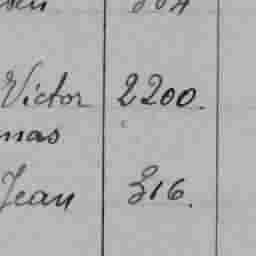 Victor 2200.
mas
Jean 316.